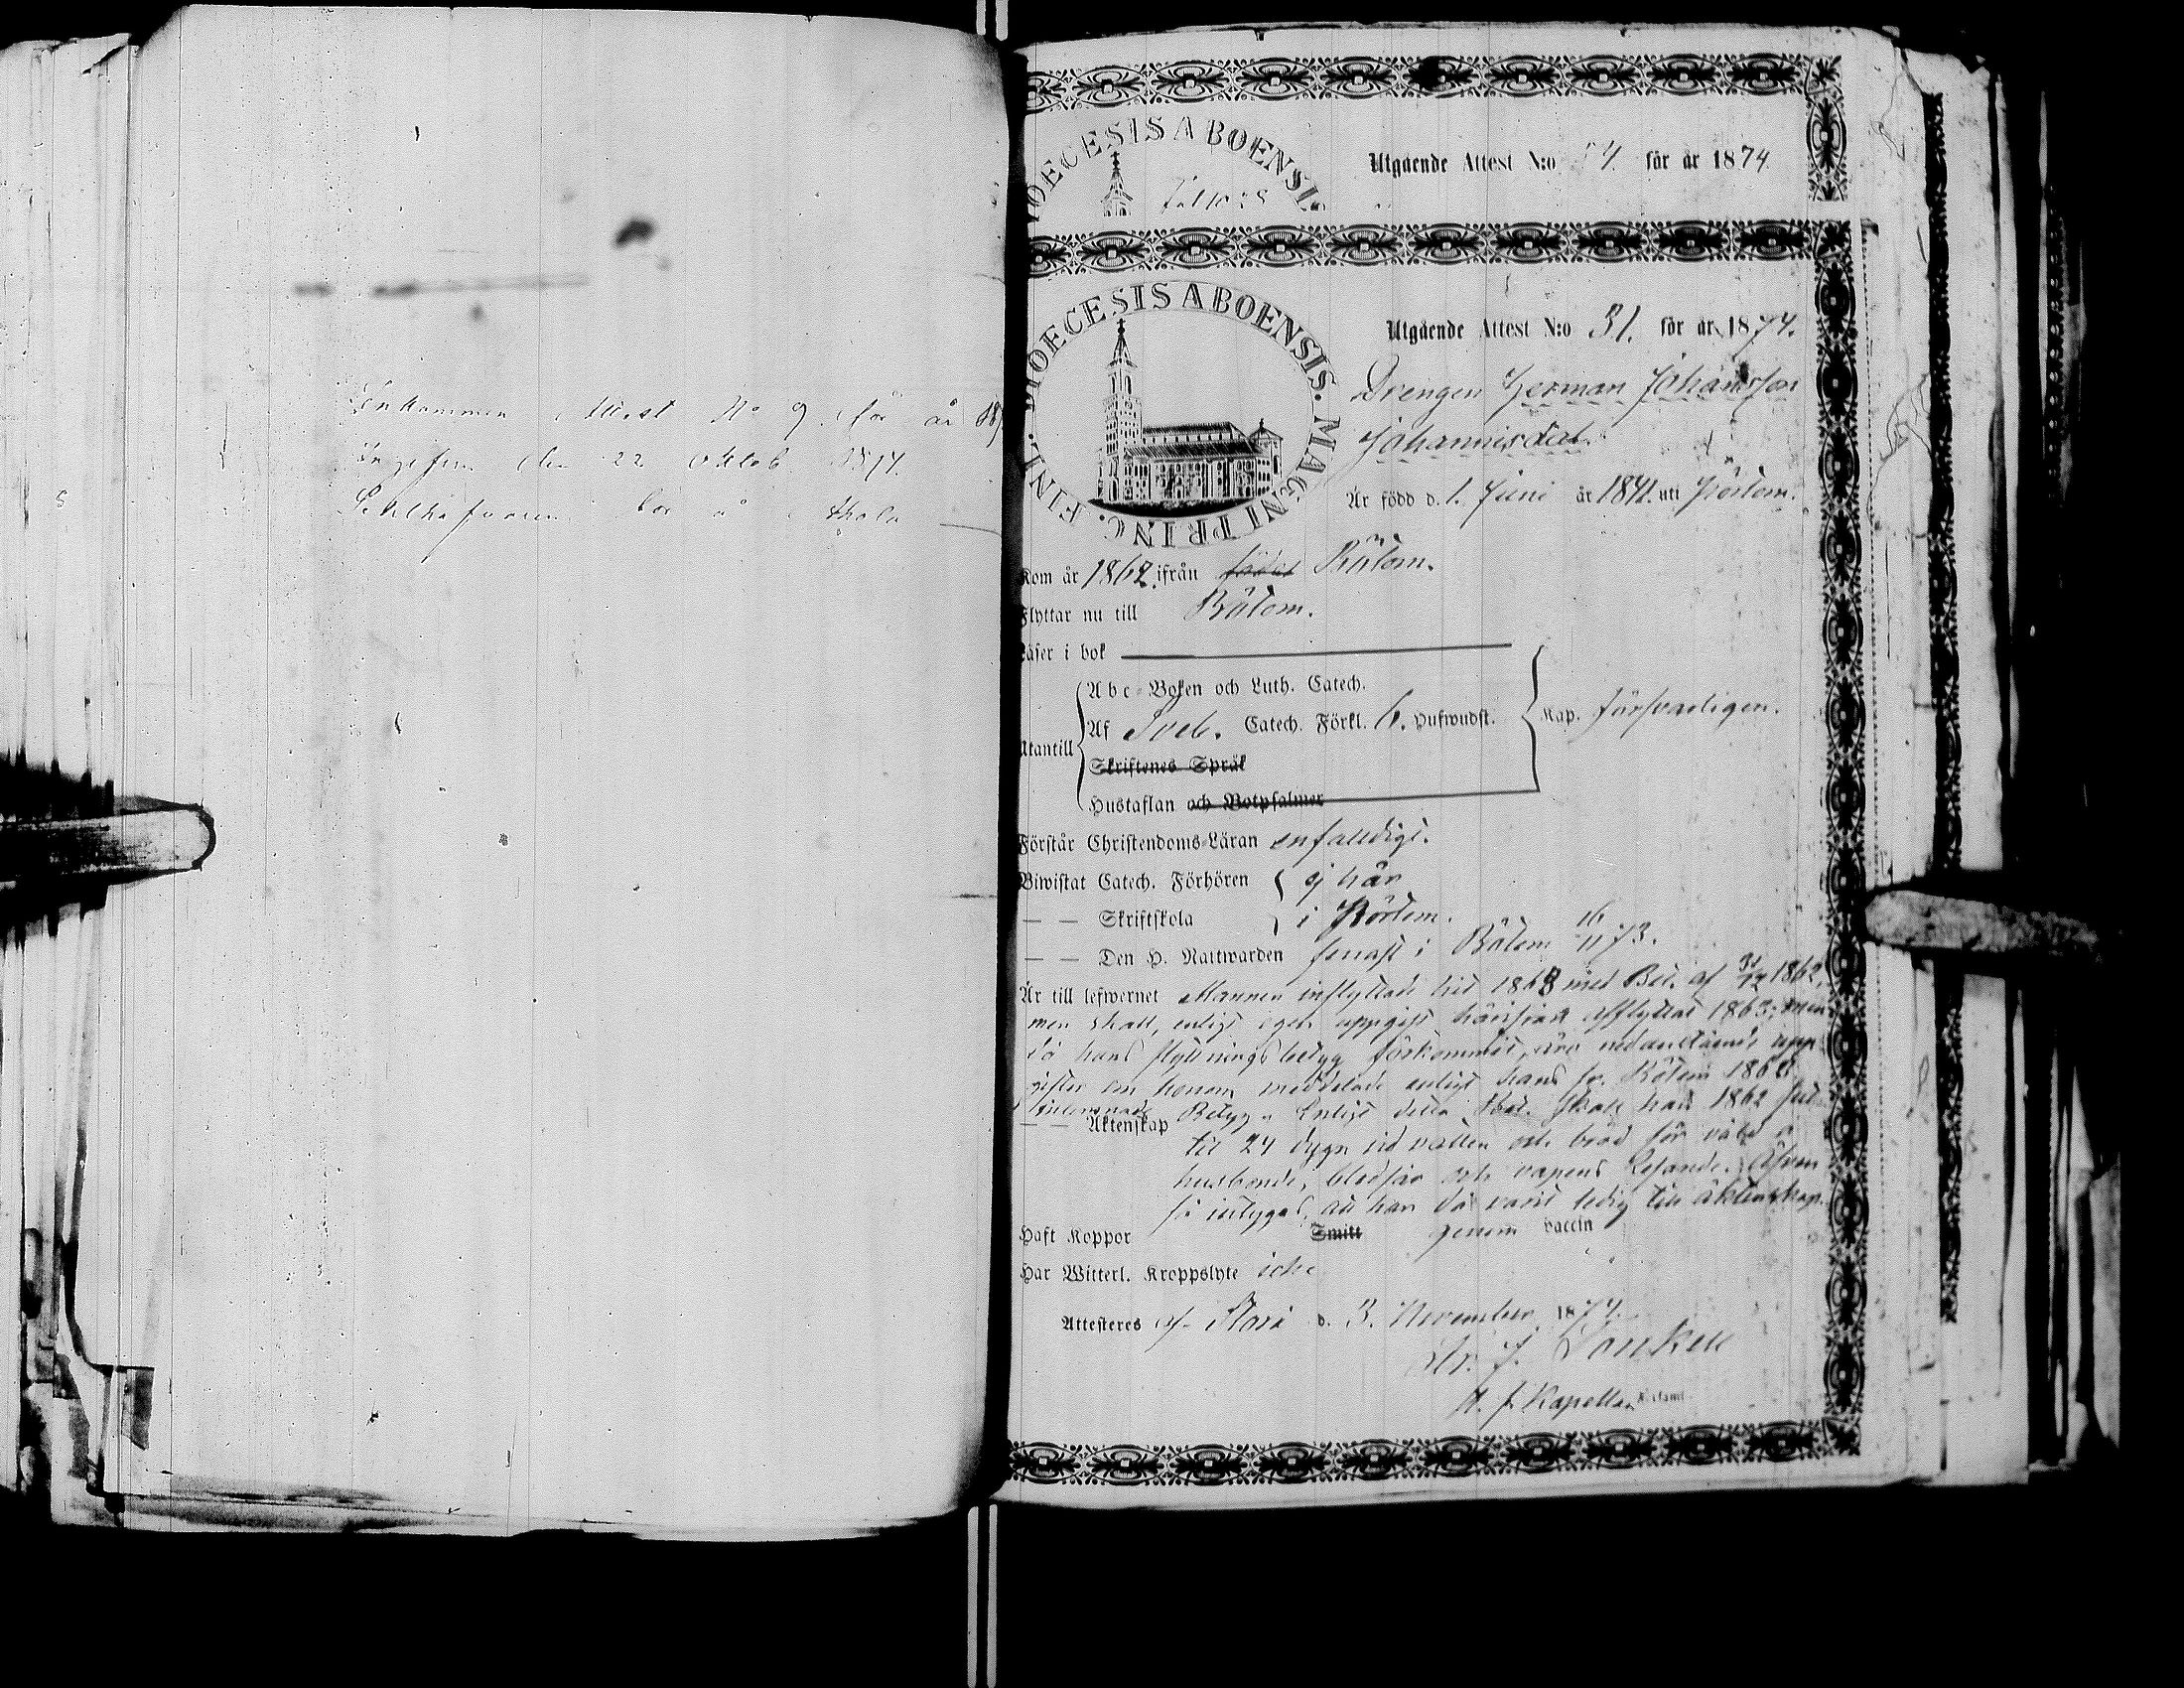 Inkommen Attest No 9 för år 187
Ingifven den 22 Oktob. 1874.
bor å
DIOECESIS ABOENSI
Utgående Attest N:o 54. för år 1874.
DIOECESIS ABOENSIS. MAGNI PRINC. FINL.
Utgående Attest N:o 31. för år 1874.
Drengen Herman Johansson
Johannisdal.
Är född d. 1. Juni år 1841. uti Pörtom.
Kom år 1862 ifrån Rötom.
Flyttar nu till Rötom.
Läser i bok
Utantill
Abc-Boken och Luth. Catech.
Af Sveb. Catech. Förkl. 6. Hufwudst. Kap. försvarligen.
Skriftenes Språk
Hustaflan och Botpsalmer
Förstår Christendoms-Läran enfaldigt.
Biwistat Catech. Förhören ej här
— — Skriftskola i Pörtom.
— — Den H. Nattwarden senast i Rötom 16/11 73.
Är till lefwernet Mannen inflyttade hit 1863 med Bet. af 31/12 1862,
men skall, enligt egen uppgift härifrån afflyttat 1863; men
då hans flyttningsbetyg förkommit, äro nedanstående upp-
gifter om honom meddelade enligt hans fr. Rötom 1862
— — Äktenskap Betyg. Enligt detta skall han 1862
till 24 dygn vid vatten och bröd för våld å
husbonde, blodsår och vapens . Äfven
så intygas, att han då varit ledig till äktenskap.
Haft Koppor Smitt genom vaccin
Har Witterl. Kroppslyte icke
Attesteres af d. 3. November 1874.
Kapellan